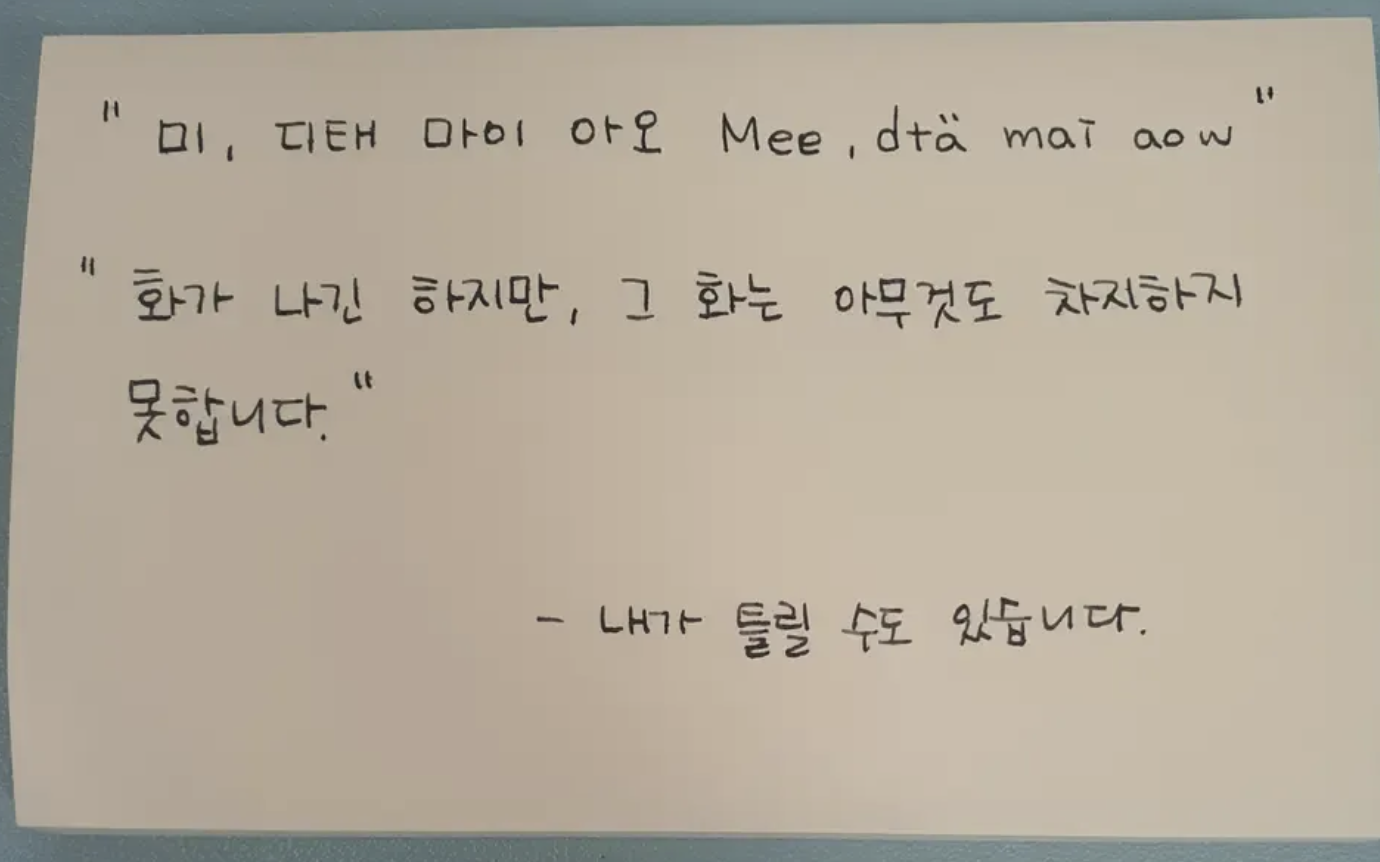 " 미, 디태 마이 아오 Mee, dtä maī aow "
" 화가 나긴 하지만, 그 화는 아무것도 차지하지
못합니다. "
- 내가 틀릴 수도 있습니다.